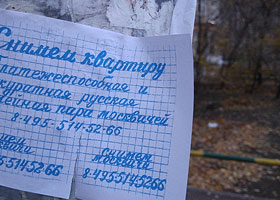 Снимем квартиру
платежеспособная и
куратная русская
ейная пара москвичей
8-495-514-52-66
снимем
москвичи
5145266
84955145266